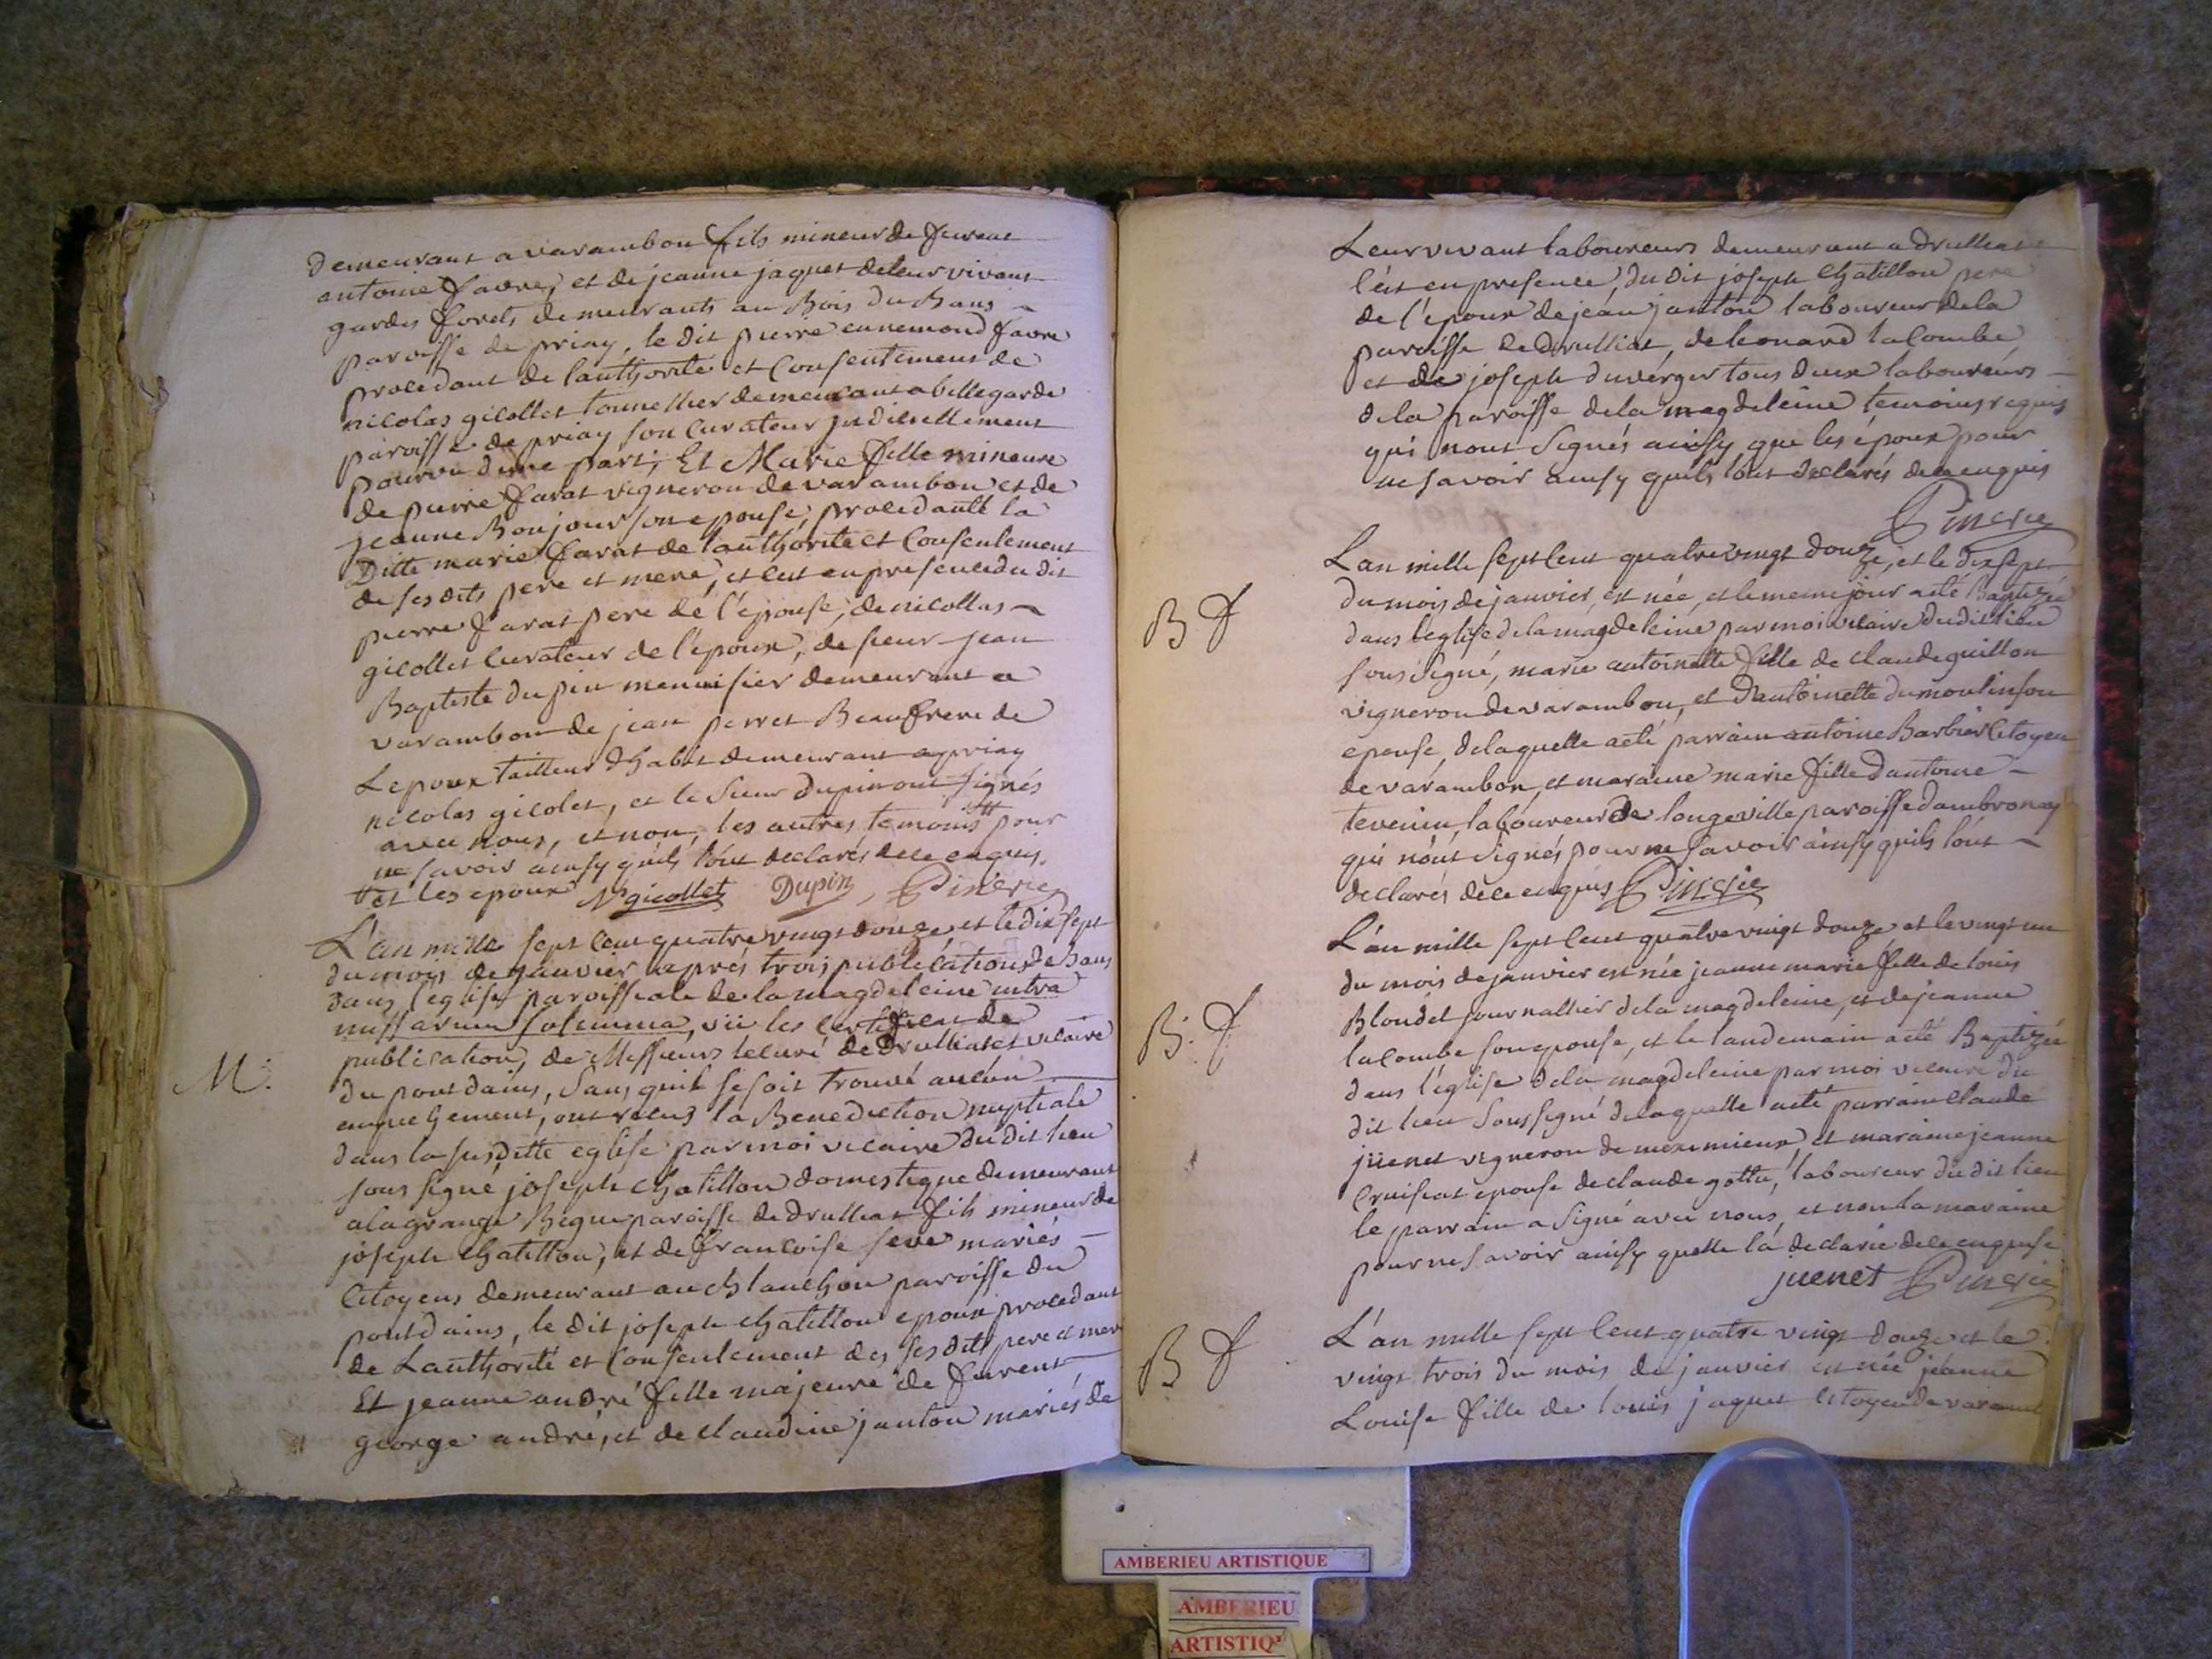 demeurant a varambon fils mineur de furent
antoine favre, et de jeanne jaquet de leur vivant
gardes forets demeurants au Bois du Bans
paroisse de priay, le dit pierre ennemond favre
procedant de lauthorité et consentement de
nicolas gicollet tonnellier demeurant a bellegarde
paroisse de priay son curateur judiciellement
pourvu dune part; Et Marie fille mineure
de pierre farat vigneron de varambon et de
jeanne Bonjour son epouse, procedante la
Ditte marie farat de lauthorité et consentement
de ses dits pere et mere, et cest en presence du dit
pierre farat pere de l'épouse, de nicollas
gicollet curateur de l'epoux, de sieur jean
Baptiste dupin menuisier demeurant a
varambon de jean perret Beaufrere de
Lepoux tailleur dhabit demeurant a priay
nicolas gicolet, et le sieur dupin ont signés
avec nous, et non, les autres temoins # pour
ne savoir ainsy quils lont declarés de ce enquis.
# et les epoux N. gicollet Dupin, Pinerie
L'an mille sept cent quatre vingt douze et le dix sept
du mois de janvier aprés trois publications de Bans
dans l'eglise paroissiale de la magdeleine intra
missarum solemnia, vü les certificat de
publication, de Messieurs lecuré de Drulliat et vicaire
M. du pont dains, sans quil se soit trouvé aucun
empechement, ont recus la Benediction nuptiale
dans la susditte eglise par moi vicaire du dit lieu
sous signé joseph chatillon domestique demeurant
a la grange Begue paroisse de drulliat fils mineur de
joseph chatillon, et de francoise seve mariés
Citoyens demeurant au chlanchon paroisse du
pont dains, le dit joseph chatillon epoux procedant
de Lauthorité et consentement des ses dits pere et mere
Et jeanne andré fille majeure de furent
george andré, et de claudine janton mariés de
Leur vivant laboureurs demeurant a drulliat
c'est en presence, du dit joseph chatillon pere
de l'epoux de jean janton laboureur de la
paroisse de Drulliat, de leonard lacombe
et de joseph duverger tous deux laboureurs
de la paroisse de la magdeleine temoins requis
qui nont signés ainsy que les époux pour
ne savoir ainsy quils lont declarés de ce enquis
Pinerie
B f Lan mille sept cent quatre vingt douze, et le dix sept
du mois de janvier, est née, et le meme jour a eté Baptizée
dans l'eglise de la magdeleine par moi vicaire du dit lieu
sous signé, marie antoinette fille de claude guillon
vigneron de varambon, et D'antoinette dumoulin son
epouse, de laquelle a eté parrain antoine Barbier Citoyen
de varambon, et maraine marie fille dantoine
tevenin, laboureur de longeville paroisse dambronay
qui nont signés pour ne savoir ainsy quils lont
declarés de ce enquis Pinerie
B. f L'an mille sept cent quatre vingt douze et le vingt un
du mois de janvier est née jeanne marie fille de louis
Blondel journallier de la magdeleine, et de jeanne
lacombe son epouse, et le landemain a eté Baptizée
dans l'église de la magdeleine par moi vicaire du
dit lieu soussigné de laquelle a eté parrain claude
jüenet vigneron de meximieux, et maraine jeanne
Cruisiat epouse de claude gottu, laboureur du dit lieu
le parrain a signé avec nous, et non la maraine
pour ne savoir ainsy quelle la declarée de ce enquise
juenet Pinerie
B. f L'an mille sept cent quatre vingt douze et le
vingt trois du mois de janvier est née jeanne
Louise fille de louis jaquet Citoyen de
AMBERIEU ARTISTIQUE
AMBERIEU
ARTISTIQ